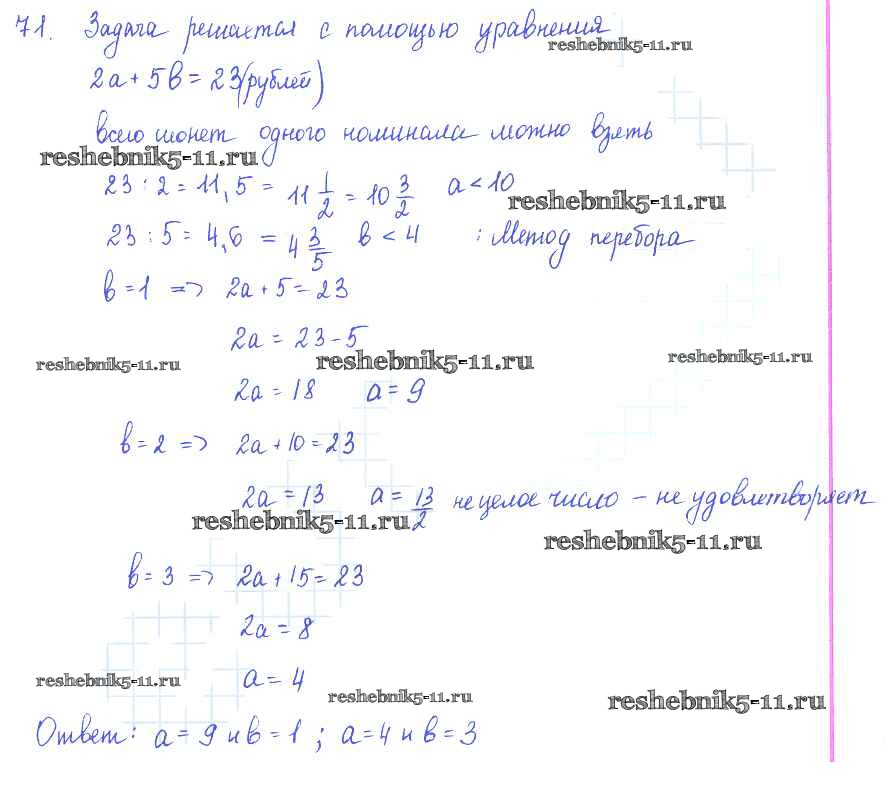 71. Задача решается с помощью уравнения
reshebnik5-11.ru
2a + 5b = 23(рублей)
всего монет одного номинала можно взять
reshebnik5-11.ru
23 : 2 = 11,5 = 11 1/2 = 10 3/2 a < 10
reshebnik5-11.ru
23 : 5 = 4,6 = 4 3/5 b < 4 : Метод перебора
b = 1 => 2a + 5 = 23
2a = 23 - 5
reshebnik5-11.ru reshebnik5-11.ru reshebnik5-11.ru
2a = 18 a = 9
b = 2 => 2a + 10 = 23
2a = 13 a = 13/2 не целое число – не удовлетворяет
reshebnik5-11.ru
reshebnik5-11.ru
b = 3 => 2a + 15 = 23
2a = 8
reshebnik5-11.ru a = 4
reshebnik5-11.ru reshebnik5-11.ru
Ответ: a = 9 и b = 1 ; a = 4 и b = 3